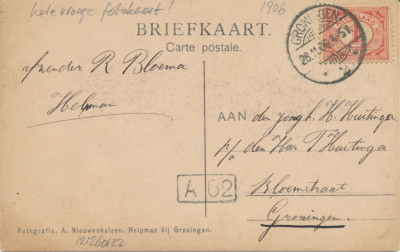 hele vroege fotokaart!
1906
BRIEFKAART.
Carte postale.
GRONINGEN
afzender R Bloema
Helpman
AAN den jongh. H. Huitinga
p/a den Heer T Huitinga
Bloemstraat
Groningen.
A 62
Fotografie. A. Nieuwenhuizen. Helpman bij Groningen.